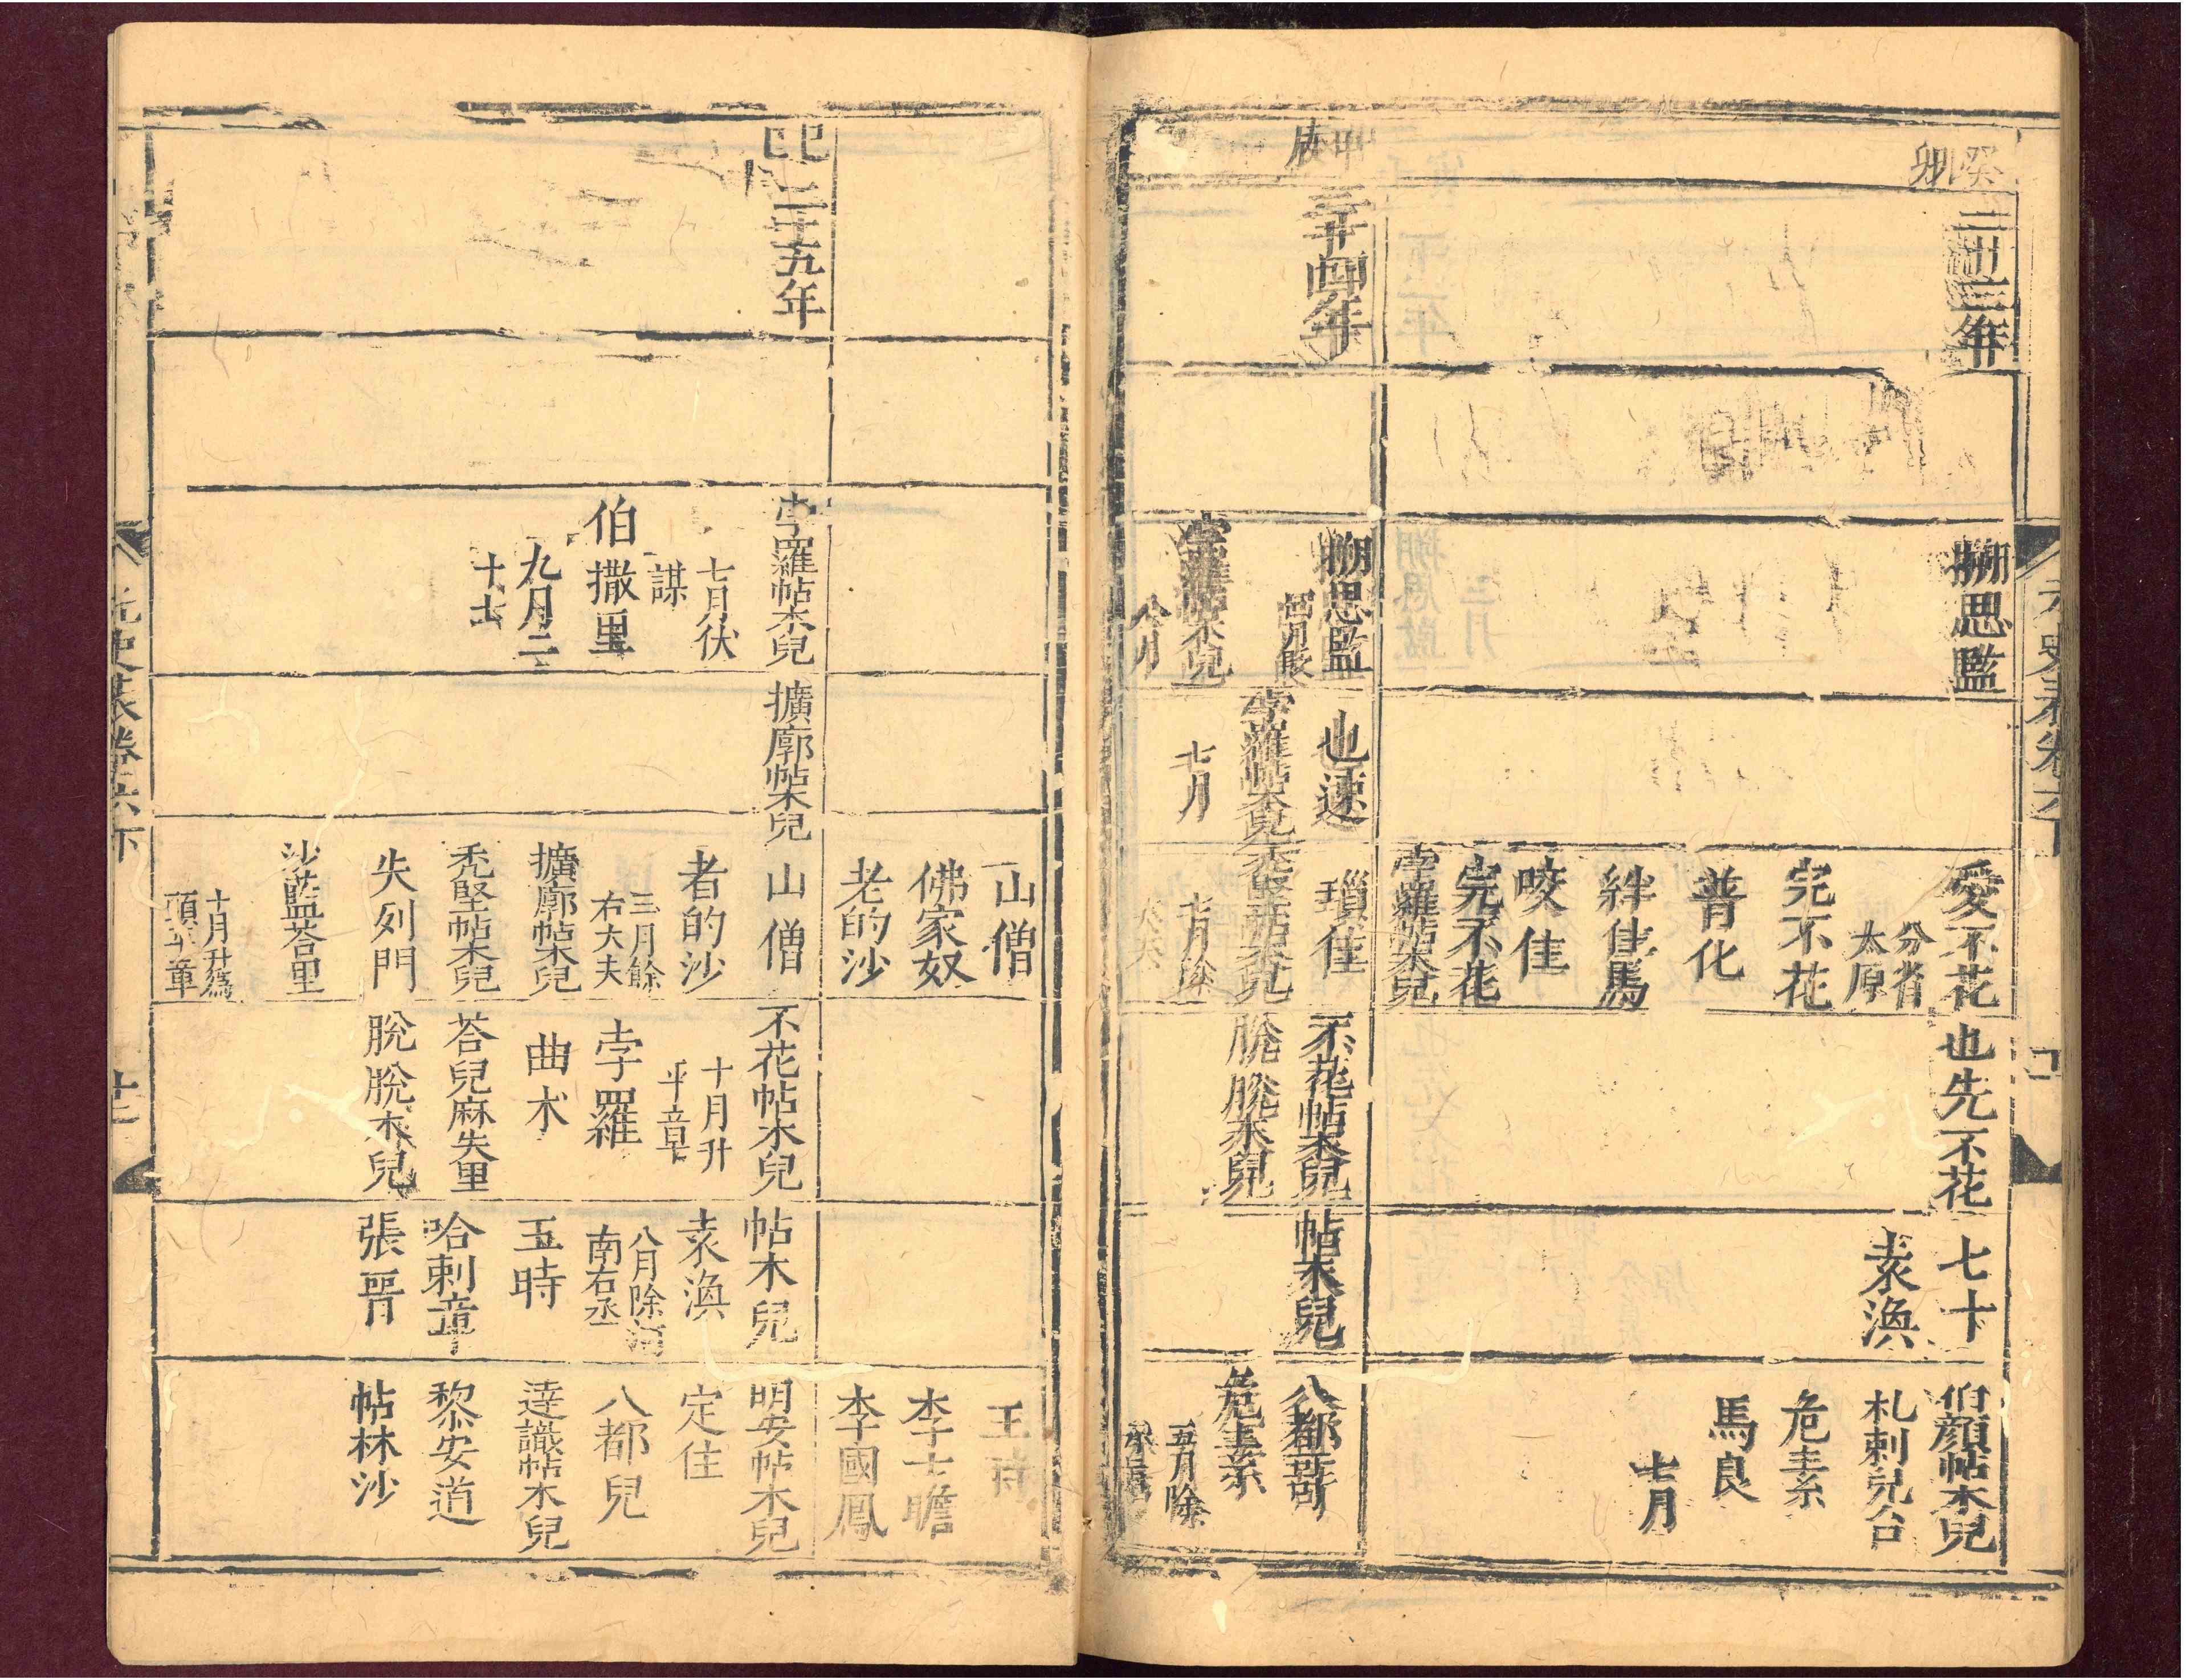 癸卯
二十三年
搠思監
愛不花
分省
太原
完不花
普化
絆住馬
咬住
完不花
孛羅帖木兒
也先不花
七十
袁渙
伯顏帖木兒
札剌兒台
危素
馬良
七月
甲辰
二十四年
搠思監
四月敗
孛羅帖木兒
八月
也速
孛羅帖木兒
七月
瑣住
禿堅帖木兒
不花帖木兒
脫脫木兒
帖木兒
八都哥
危素
五月除
山僧
佛家奴
老的沙
王
李士瞻
李國鳳
乙巳
二十五年
孛羅帖木兒
七月伏
謀
伯撒里
九月二
十七
擴廓帖木兒
山僧
老的沙
三月除
右大夫
擴廓帖木兒
禿堅帖木兒
失列門
沙藍荅里
十月升爲
頭平章
不花帖木兒
十月升
平章
孛羅
曲木
荅兒麻失里
脫脫木兒
帖木兒
袁渙
八月除河
南右丞
王時
哈剌章
張晉
明安帖木兒
定住
八都兒
達識帖木兒
黎安道
帖林沙
元史表卷六下